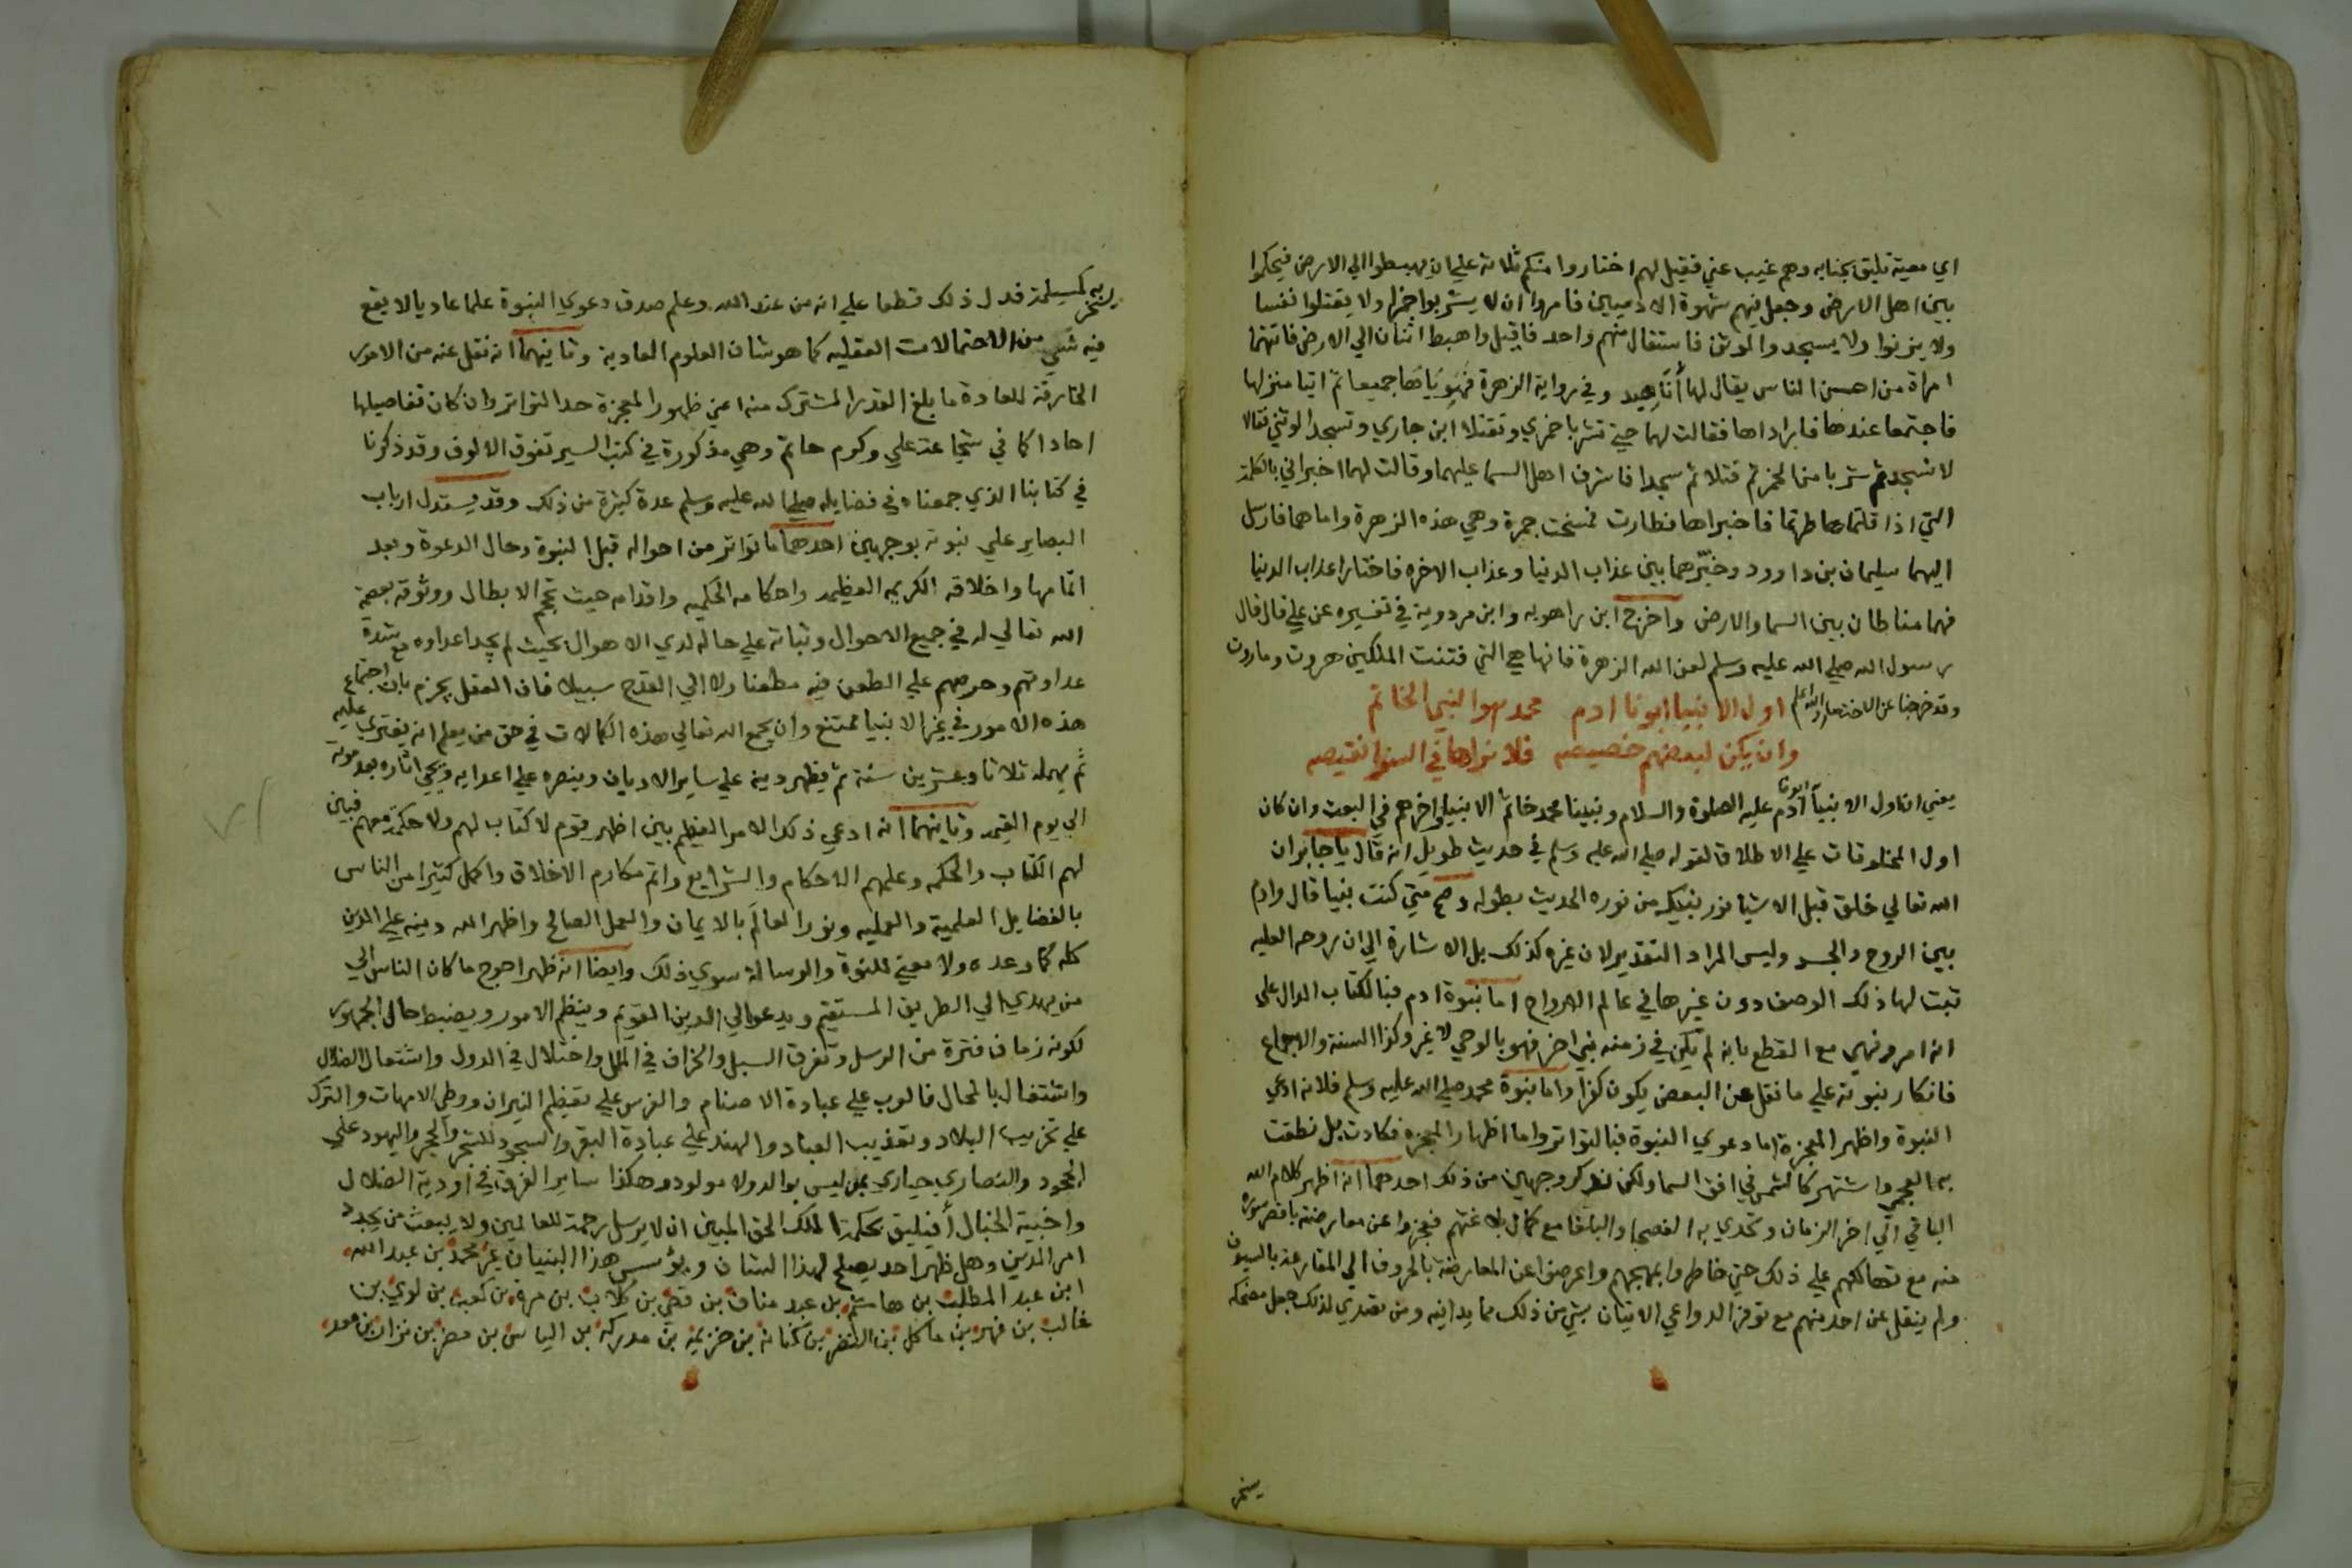 اي معية تليق بجنابه وهم غيب عني فقيل لهم اختاروا منكم ثلاثة علي ان يهبطوا الي الارض فيحكموا
بين اهل الارض وجعل فيهم شهوة الادميين فامروا ان لا يشربوا خمرا ولا يقتلوا نفسا
ولا يزنوا ولا يسجدوا لوثن فاستقال منهم واحد فاقيل واهبط اثنان الي الارض فاتتهما
امراة من احسن الناس يقال لها أناهيد وفي رواية الزهرة فهوياها جميعا ثم اتيا منزلها
فاجتمعا عندها فاراداها فقالت لهما حتي تشربا خمري وتقتلا ابن جاري وتسجدا لوثني فقالا
لا نسجد ثم شربا من الخمر ثم قتلا ثم سجدا فاشرف اهل السما عليهما وقالت لهما اخبراني بالكلمة
التي اذا قلتماها طرتما فاخبراها فطارت فمسخت جمرة وهي هذه الزهرة واما هما فارسل
اليهما سليمان بن داوود وخيّرهما بين عذاب الدنيا وعذاب الاخره فاختارا عذاب الدنيا
فهما مناطان بين السما والارض واخرج ابن راهويه وابن مردوية في تفسيره عن علي قال قال
رسول الله صلي الله عليه وسلم لعن الله الزهرة فانها هي التي فتنت الملكين هروت وماروت
وقد خرجنا عن الاختصار والله اعلم اول الانبيا ابونا ادم محمد هو النبي الخاتم
وان يكن لبعضهم خصيصه فلا نراها في السوي نقيصه
يعني ان اول الانبيآ ابونا آدم عليه الصلوة والسلام ونبينا محمد خاتم الانبيا واخرهم في البعث وان كان
اول المخلوقات علي الاطلاق لقوله صلي الله عليه وسلم في حديث طويل انه قال يا جابر ان
الله تعالي خلق قبل الاشيا نور نبيك من نوره الحديث بطوله وصح متي كنت نبيا قال وادم
بين الروح والجسد وليس المراد التقدير لان غيره كذلك بل الاشارة الي ان روحه العليه
ثبت لها ذلك الوصف دون غيرها في عالم الارواح اما نبوة ادم فبالكتاب الدال علي
انه امر ونهي مع القطع بانه لم يكن في زمنه نبي اخر فهو بالوحي لا غير وكذا السنة والاجماع
فانكار نبوته علي ما نقل عن البعض يكون كفرا واما نبوة محمد صلي الله عليه وسلم فلانه ادعي
النبوة واظهر المعجزة اما دعوي النبوة فبالتواتر واما اظهار المعجزه فكادت بل نطقت
به العجم واشتهر كالشمس في افق السما ولكن نذكر وجهين من ذلك احدهما انه اظهر كلام الله
الباقي الي اخر الزمان وتحدي به الفصحا والبلغا مع كمال بلاغتهم فعجزوا عن معارضته باقصر سورة
منه مع تهالكهم علي ذلك حتي خاطروا بمهجهم واعرضوا عن المعارضة بالحروف الي المقارعة بالسيوف
ولم ينقل عن احد منهم مع توفر الدواعي الاتيان بشي من ذلك مما يدانيه ومن تصدي لذلك جعل مضحكه
يسخر
يسخر به كمسيلمة فدل ذلك قطعا علي انه من عند الله وعلم صدق دعوي النبوة علما عاديا لا يقع
فيه شي من الاحتمالات العقليه كما هو شان العلوم العادية وثانيهما انه نقل عنه من الامور
الخارقة للعادة ما بلغ القدر المشترك منه اعني ظهور المعجزة حد التواتر وان كان تفاصيلها
احادا كما في شجاعة علي وكرم حاتم وهي مذكورة في كتب السير تفوق الالوف وقد ذكرنا
في كتابنا الذي جمعناه في فضايله صلي الله عليه وسلم عدة كثيرة من ذلك وقد يستدل ارباب
البصاير علي نبوته بوجهين احدهما ما تواتر من احواله قبل النبوة وحال الدعوة وبعد
اتمامها واخلاقه الكريمه العظيمه واحكامه الحكميه واقدامه حيث تحجم الابطال ووثوقه بعصمة
الله تعالي له في جميع الاحوال وثباته علي حاله لدي الاهوال بحيث لم يجد اعداوه مع شدة
عداوتهم وحرصهم علي الطعن فيه مطعنا ولا الي القدح سبيلا فان العقل يجزم بان اجتماع
هذه الامور في غير الانبيا ممتنع وان يجمع الله تعالي هذه الكمالات في حق من يعلم انه يفتري عليه
ثم يمهله ثلاثا وعشرين سنة ثم يظهر دينه علي ساير الاديان وينصره علي اعدايه ويحي اثاره بعد موته
الي يوم القيمه وثانيهما انه ادعي ذلك الامر العظيم بين اظهر قوم لا كتاب لهم ولا حكمة معهم فبين
لهم الكتاب والحكمه وعلمهم الاحكام والشرايع واتم مكارم الاخلاق واكمل كثيرا من الناس
بالفضايل العلمية والعمليه ونور العالم بالايمان والعمل الصالح واظهر الله دينه علي الدين
كله كما وعده ولا معني للنبوة والرسالة سوي ذلك وايضا انه ظهر احوج ما كان الناس الي
من يهدي الي الطريق المستقيم ويدعو الي الدين القويم وينظم الامور ويضبط حال الجمهور
لكونه زمان فترة من الرسل وتفرق السبل وانحراف في الملل واختلال في الدول واشتعال الضلال
واشتغال بالمحال فالعرب علي عبادة الاصنام والفرس علي تعظيم النيران ووطي الامهات والترك
علي تخريب البلاد وتعذيب العباد والهند علي عبادة البقر والسجود للشجر والحجر واليهود علي
الجحود والنصاري حياري بمن ليس بوالد ولا مولود وهكذا ساير الفرق في اودية الضلال
واخبية الخبال أفيليق بحكمة الملك الحق المبين ان لا يرسل رحمة للعالمين ولا يبعث من يجدد
امر الدين وهل ظهر احد يصلح لهذا الشان ويؤسس هذا البنيان غير محمد بن عبد الله
ابن عبد المطلب بن هاشم بن عبد مناف بن قصي بن كلاب بن مرة بن كعب بن لوي بن
غالب بن فهر بن مالك بن النضر بن كنانة بن خزيمة بن مدركة بن الياس بن مضر بن نزار بن معد